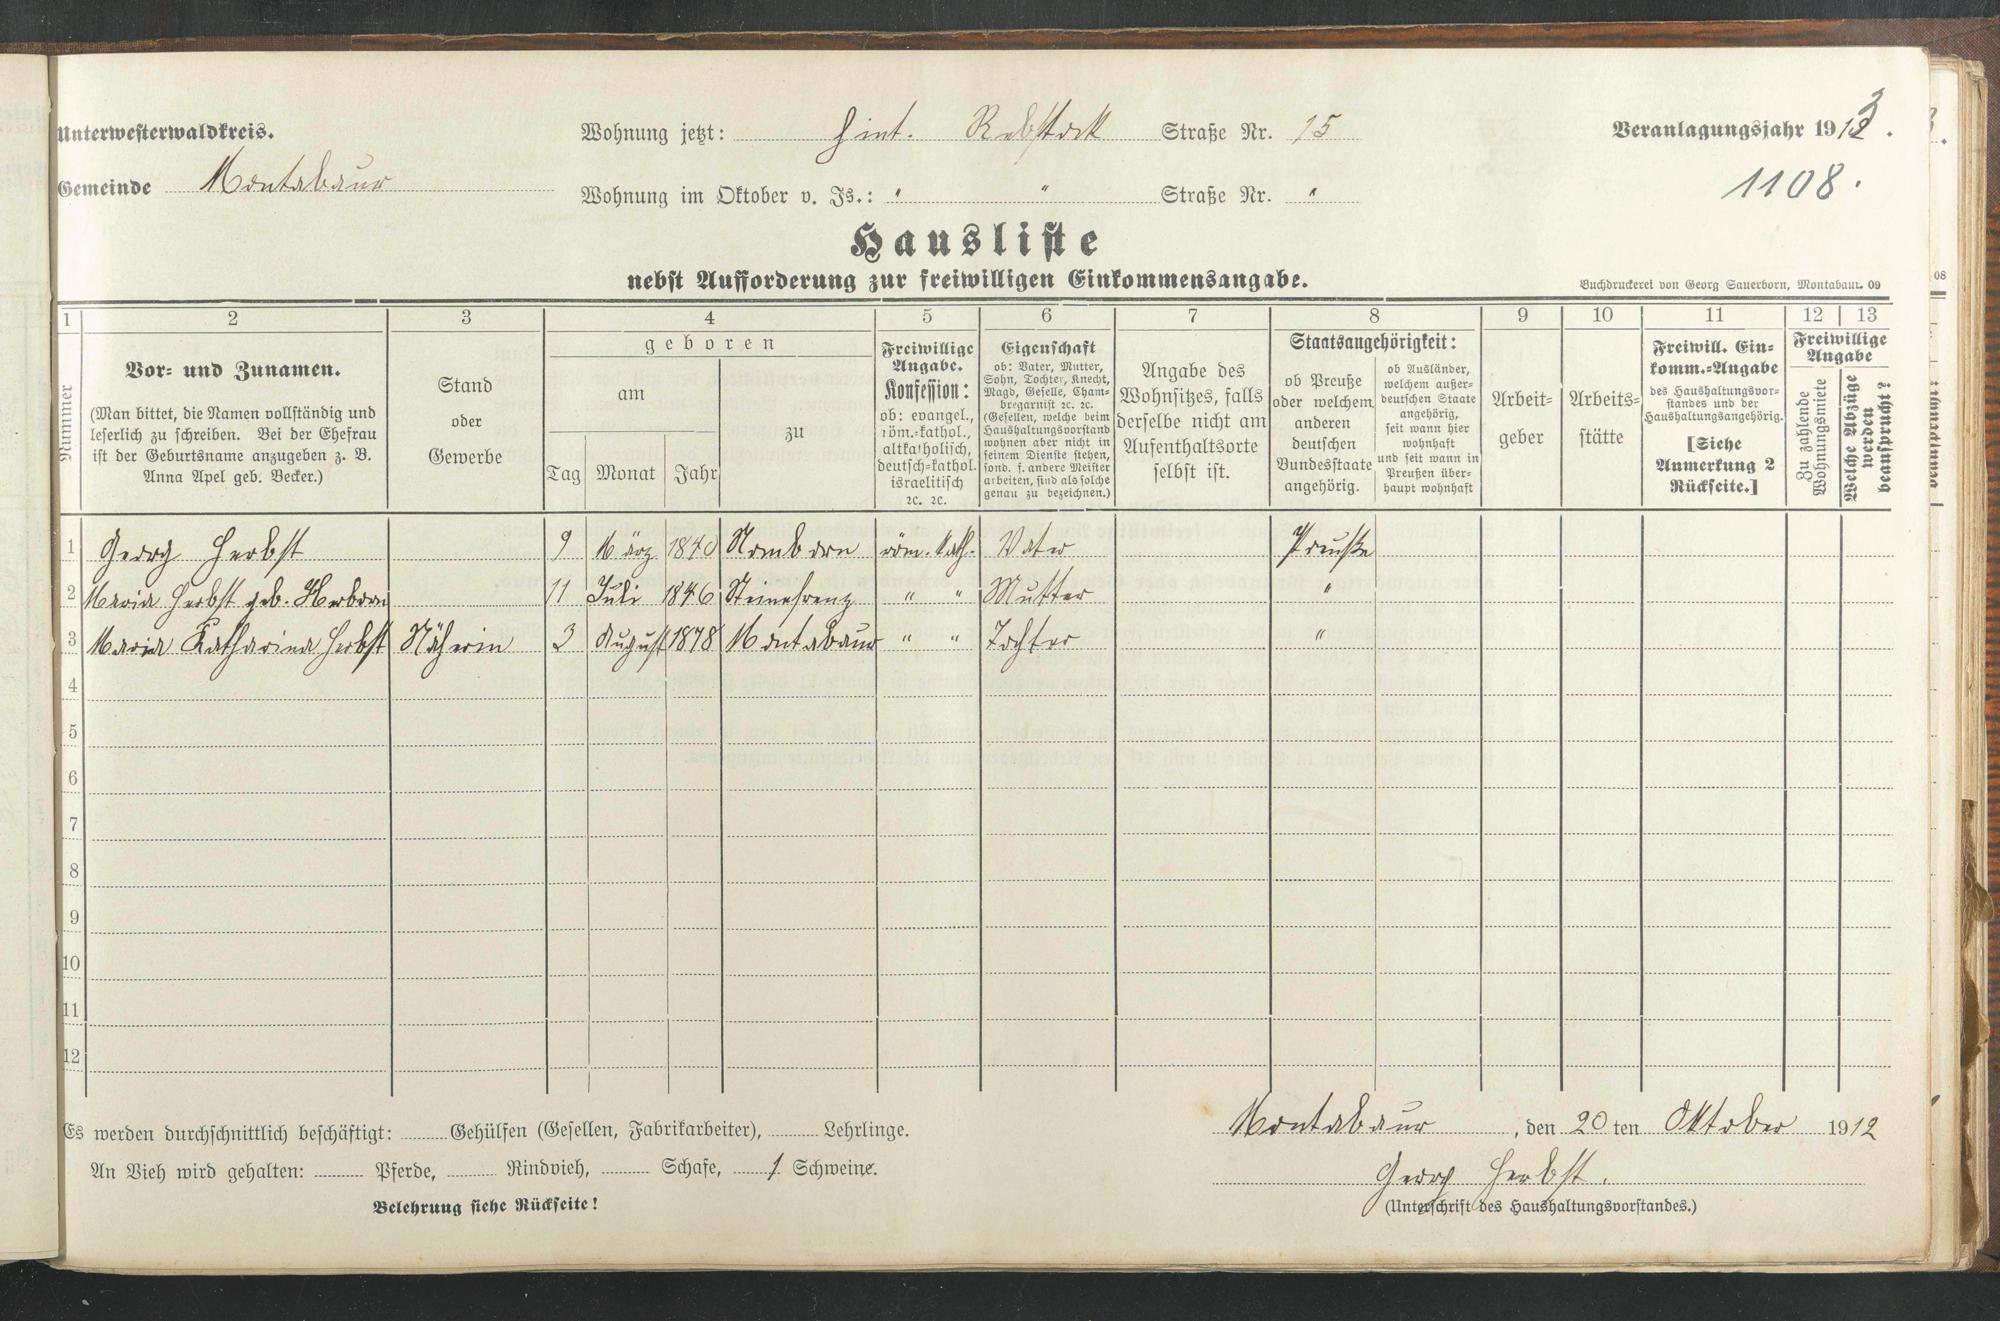 Unterwesterwaldkreis.
Wohnung jetzt: Hint. Rebstock Straße Nr. 15
Veranlagungsjahr 1913.
Gemeinde Montabaur
Wohnung im Oktober v. Js.: " " Straße Nr. "
1108.
Hausliste
nebst Aufforderung zur freiwilligen Einkommensangabe.
Buchdruckerei von Georg Sauerborn, Montabaur. 09
1 2 3 4 5 6 7 8 9 10 11 12 13
Nummer
Vor- und Zunamen.
(Man bittet, die Namen vollständig und
leserlich zu schreiben. Bei der Ehefrau
ist der Geburtsname anzugeben z. B.
Anna Apel geb. Becker.)
Stand
oder
Gewerbe
geboren
am
zu
Tag Monat Jahr
Freiwillige
Angabe.
Konfession:
ob: evangel.,
röm.-kathol.,
altkatholisch,
deutsch-kathol.
israelitisch
ꝛc. ꝛc.
Eigenschaft
ob: Vater, Mutter,
Sohn, Tochter, Knecht,
Magd, Geselle, Cham-
bregarnist ꝛc. ꝛc.
(Gesellen, welche beim
Haushaltungsvorstand
wohnen aber nicht in
seinem Dienste stehen,
sond. f. andere Meister
arbeiten, sind als solche
genau zu bezeichnen.)
Angabe des
Wohnsitzes, falls
derselbe nicht am
Aufenthaltsorte
selbst ist.
Staatsangehörigkeit:
ob Preuße
oder welchem
anderen
deutschen
Bundesstaate
angehörig.
ob Ausländer,
welchem außer-
deutschen Staate
angehörig,
seit wann hier
wohnhaft
und seit wann in
Preußen über-
haupt wohnhaft
Arbeit-
geber
Arbeits-
stätte
Freiwill. Ein-
komm.-Angabe
des Haushaltungsvor-
standes und der
Haushaltungsangehörig.
[Siehe
Anmerkung 2
Rückseite.]
Freiwillige
Angabe
Zu zahlende
Wohnungsmiete
Welche Abzüge
werden
beansprucht?
1 Georg Herbst 9 März 1840 Nomborn röm. kath. Vater Preuße
2 Maria Herbst geb. Herborn 11 Juli 1846 Steinefrenz " " Mutter "
3 Maria Katharina Herbst Näherin 3 August 1878 Montabaur " " Tochter "
4
5
6
7
8
9
10
11
12
Es werden durchschnittlich beschäftigt: Gehülfen (Gesellen, Fabrikarbeiter), Lehrlinge.
Montabaur, den 20 ten Oktober 1912
An Vieh wird gehalten: Pferde, Rindvieh, Schafe, 1 Schweine.
Georg Herbst.
Belehrung siehe Rückseite!
(Unterschrift des Haushaltungsvorstandes.)